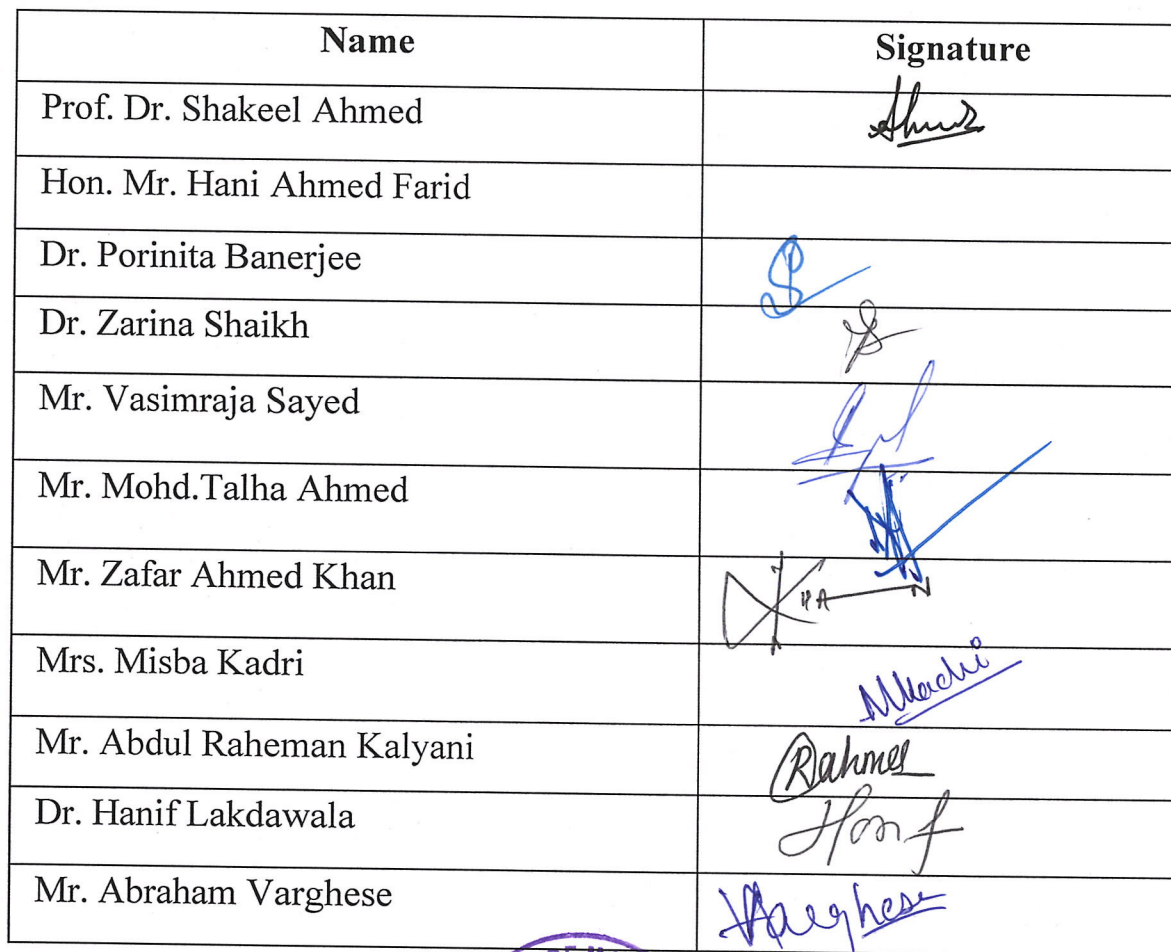 Name Signature
Prof. Dr. Shakeel Ahmed
Hon. Mr. Hani Ahmed Farid
Dr. Porinita Banerjee
Dr. Zarina Shaikh
Mr. Vasimraja Sayed
Mr. Mohd.Talha Ahmed
Mr. Zafar Ahmed Khan
Mrs. Misba Kadri MKadri
Mr. Abdul Raheman Kalyani
Dr. Hanif Lakdawala Hanif
Mr. Abraham Varghese Varghese